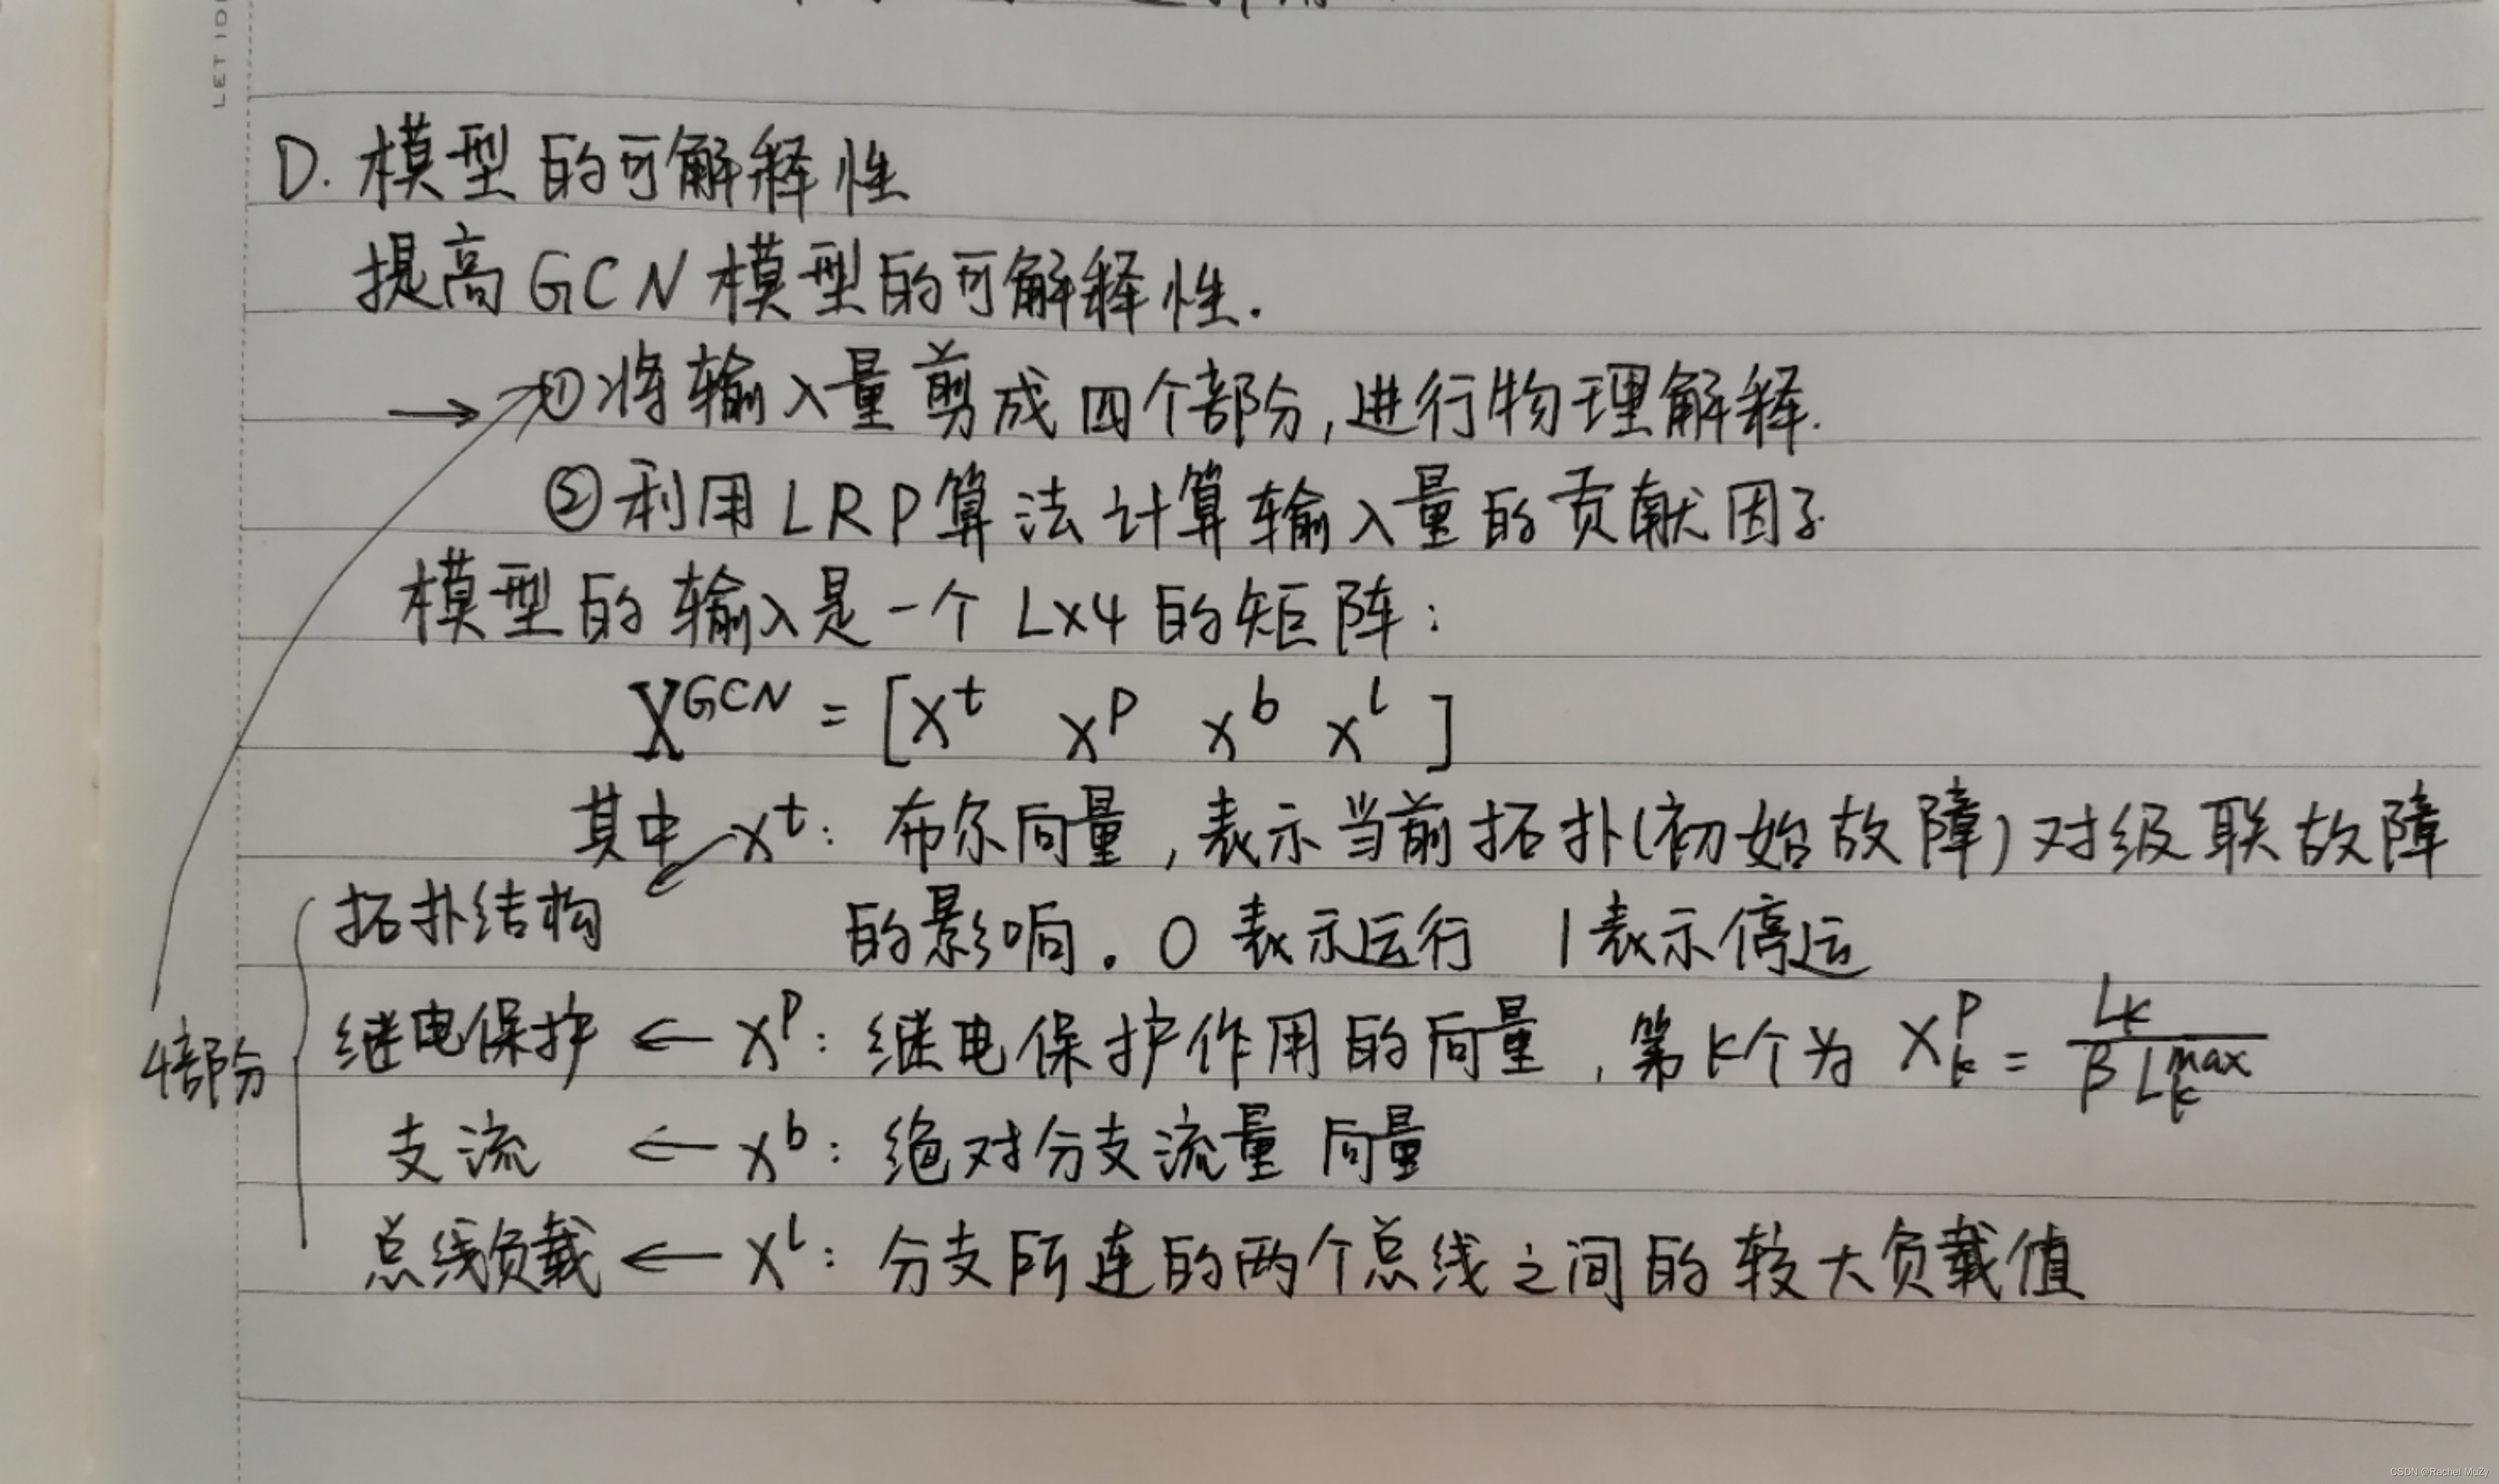 LET IDE
D. 模型的可解释性
提高GCN模型的可解释性.
→ ①将输入量剪成四个部分,进行物理解释.
②利用LRP算法计算输入量的贡献因子
模型的输入是一个 L×4 的矩阵:
X^GCN = [x^t x^p x^b x^l]
其中 x^t: 布尔向量,表示当前拓扑(初始故障)对级联故障
拓扑结构 的影响. 0 表示运行 1表示停运
继电保护 ← x^p: 继电保护作用的向量,第k个为 x_k^p = L_k / β L_k^max
4部分
支流 ← x^b: 绝对分支流量向量
总线负载 ← x^l: 分支所连的两个总线之间的较大负载值
CSDN @Rachel MuZy